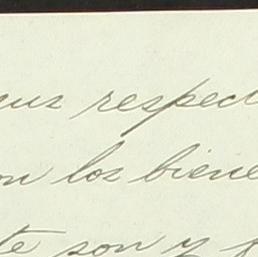 sus respect
on los biene
te son y p